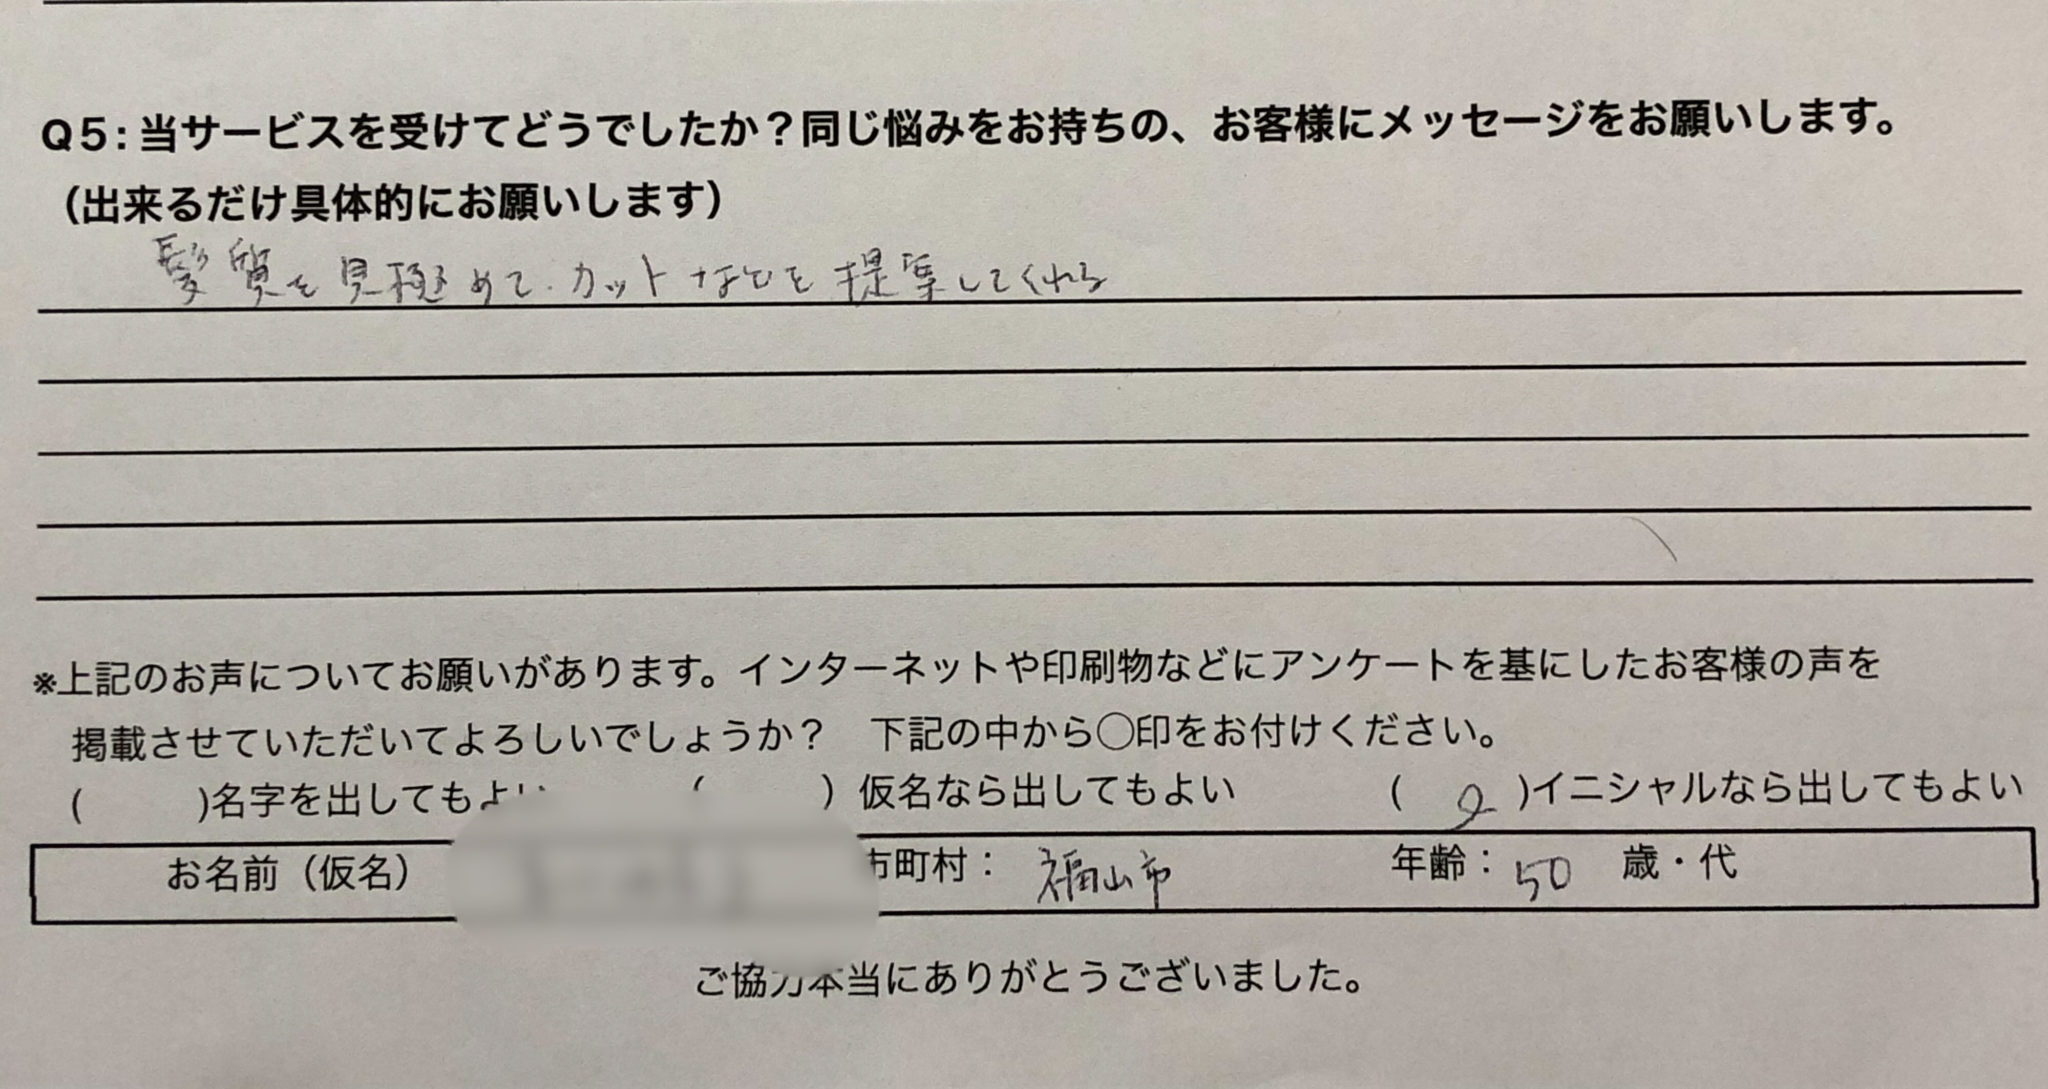 Q5:当サービスを受けてどうでしたか？同じ悩みをお持ちの、お客様にメッセージをお願いします。
（出来るだけ具体的にお願いします）
髪質を見極めて、カットなどを提案してくれる
※上記のお声についてお願いがあります。インターネットや印刷物などにアンケートを基にしたお客様の声を
掲載させていただいてよろしいでしょうか？　下記の中から○印をお付けください。
(　　)名字を出してもよい　(　　)仮名なら出してもよい　(　○　)イニシャルなら出してもよい
お名前（仮名）　市町村：福山市　年齢：50　歳・代
ご協力本当にありがとうございました。